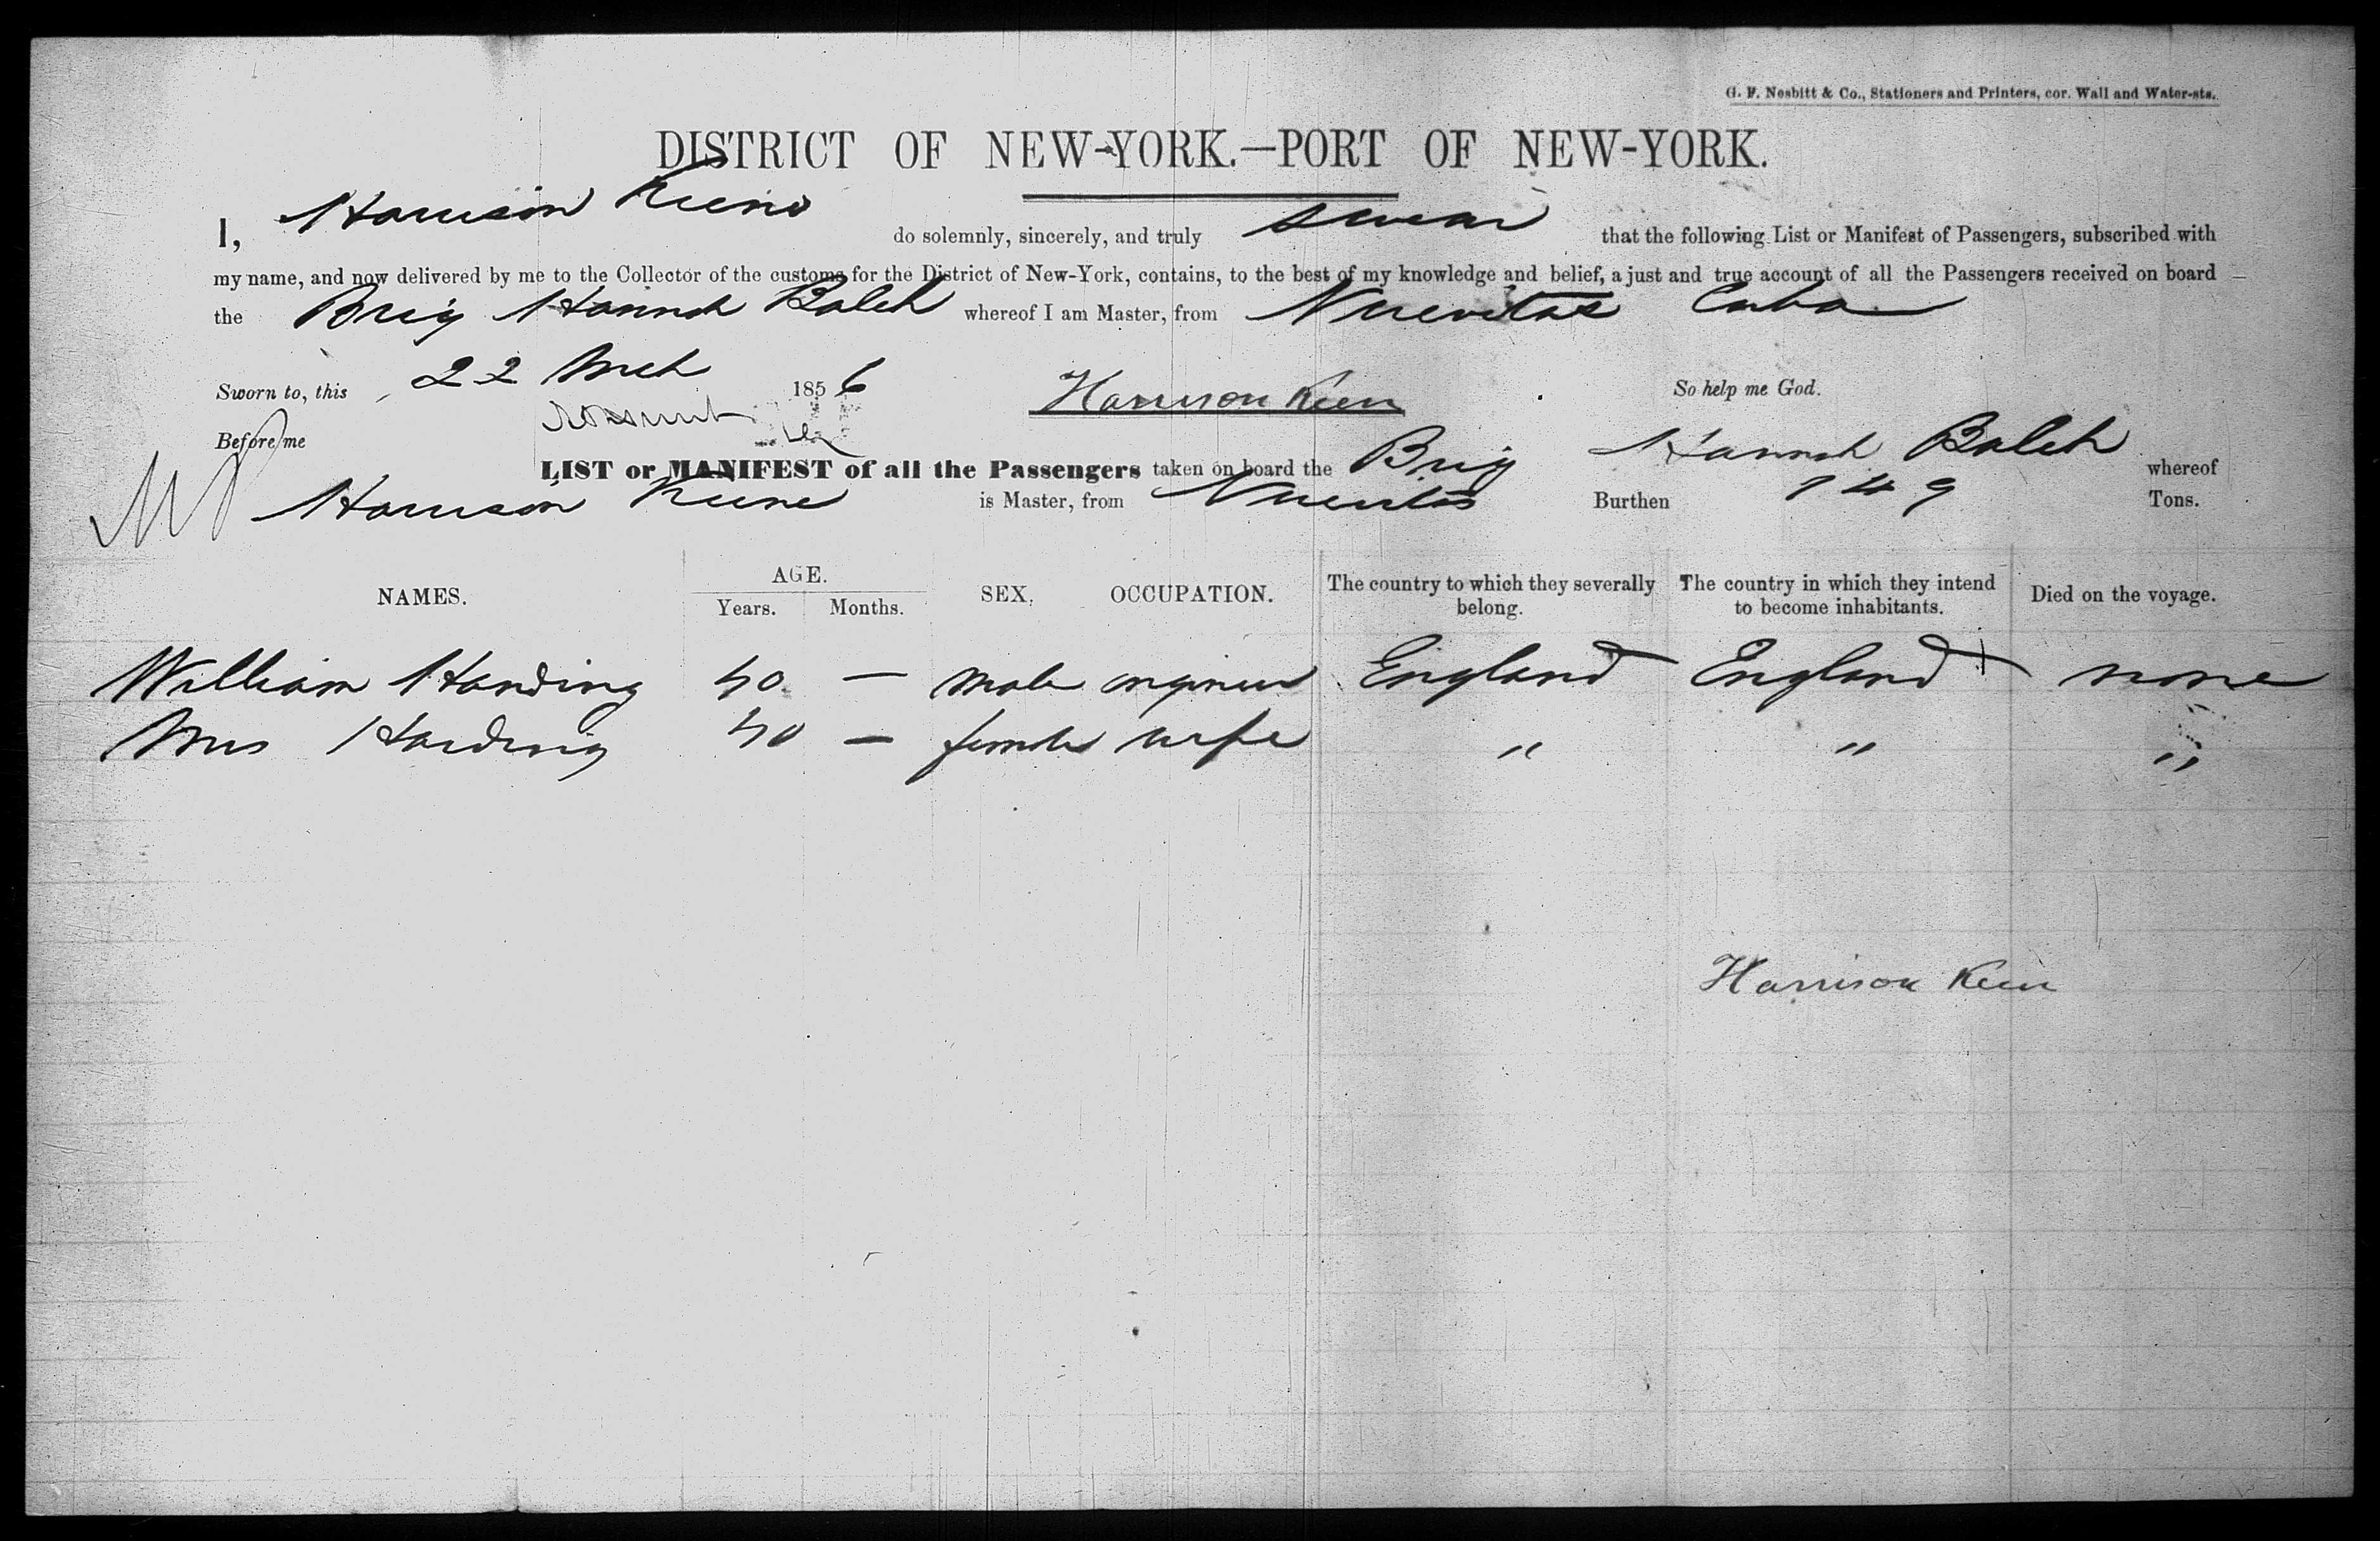 G. F. Nesbitt & Co., Stationers and Printers, cor. Wall and Water-sts.
DISTRICT OF NEW-YORK.—PORT OF NEW-YORK.
I, Harrison Keene do solemnly, sincerely, and truly swear that the following List or Manifest of Passengers, subscribed with
my name, and now delivered by me to the Collector of the customs for the District of New-York, contains, to the best of my knowledge and belief, a just and true account of all the Passengers received on board
the Brig Hannah Balch whereof I am Master, from Nuevitas Cuba
Sworn to, this 22 Mch 1856 Harrison Keen So help me God.
Before me
LIST or MANIFEST of all the Passengers taken on board the Brig Hannah Balch whereof
Harrison Keene is Master, from Nuevitas Burthen 149 Tons.
NAMES. AGE. Years. Months. SEX. OCCUPATION. The country to which they severally belong. The country in which they intend to become inhabitants. Died on the voyage.
William Harding 40 — male engineer England England none
Mrs Harding 40 — female wife " " "
Harrison Keen